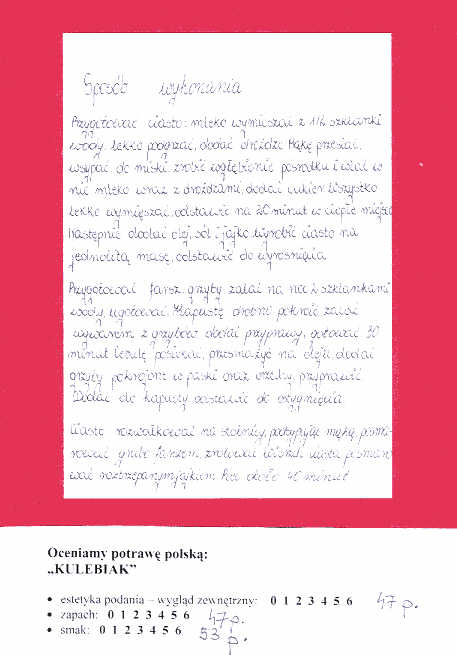 Sposób wykonania
Przygotować ciasto: mleko wymieszać z 1/2 szklanki
wody, lekko podgrzać, dodać drożdże. Mąkę przesiać,
wsypać do miski zrobić wgłębienie pośrodku i wlać w
nie mleko wraz z drożdżami, dodać cukier. Wszystko
lekko wymieszać, odstawić na 20 minut w ciepłe miejsce
Następnie dodać olej, sól i jajko. Wyrobić ciasto na
jednolitą masę, odstawić do wyrośnięcia.
Przygotować farsz: grzyby zalać na noc 2 szklankami
wody, ugotować. Kapustę drobno pokroić zalać
wywarem z grzybów dodać przyprawy, gotować 30
minut. Cebulę posiekać, przesmażyć na oleju, dodać
grzyby pokrojone w paski oraz orzechy, przyprawić
Dodać do kapusty odstawić do ostygnięcia.
Ciasto rozwałkować na stolnicy, podsypując mąką, posma-
rować farszem, zwinąć ciasta posmaro-
wać roztrzepanym jajkiem. Piec około 40 minut
Oceniamy potrawę polską:
„KULEBIAK”
• estetyka podania – wygląd zewnętrzny: 0 1 2 3 4 5 6 47 p.
• zapach: 0 1 2 3 4 5 6 47 p.
• smak: 0 1 2 3 4 5 6 53 p.